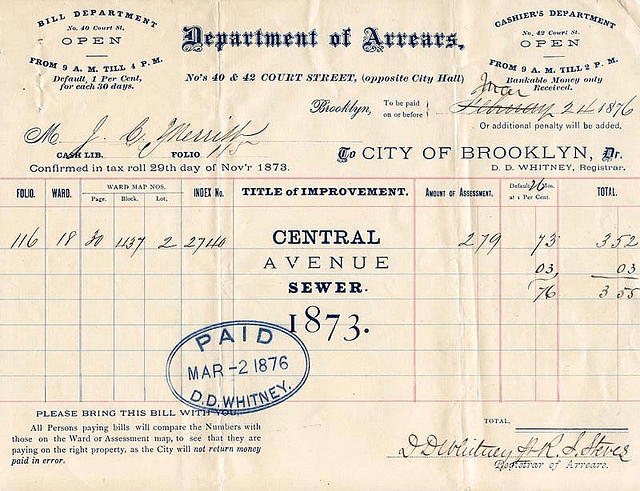 BILL DEPARTMENT
No. 40 Court St.
OPEN
FROM 9 A. M. TILL 4 P. M.
Default, 1 Per Cent,
for each 30 days.
Department of Arrears,
No's 40 & 42 COURT STREET, (opposite City Hall)
CASHIER'S DEPARTMENT
No. 42 Court St.
OPEN
FROM 9 A. M. TILL 2 P. M.
Bankable Money only
Received.
Brooklyn, To be paid on or before Mar 24 1876
Or additional penalty will be added,
M J. C. Merritt
CASH LIB. FOLIO 115
To CITY OF BROOKLYN, Dr.
Confirmed in tax roll 29th day of Nov'r 1873.
D. D. WHITNEY, Registrar.
FOLIO. WARD. WARD MAP NOS. Page. Block. Lot. INDEX No. TITLE of IMPROVEMENT. AMOUNT OF ASSESSMENT. Default 26 Mos. at 1 Per Cent. TOTAL.
116 18 30 1437 2 2740 CENTRAL 279 73 352
AVENUE 03, 03
SEWER. 76 355
1873.
PAID
MAR -2 1876
D. D. WHITNEY.
PLEASE BRING THIS BILL WITH YOU.
All Persons paying bills will compare the Numbers with
those on the Ward or Assessment map, to see that they
are paying on the right property, as the City will not return money
paid in error.
TOTAL,
D D Whitney
Registrar of Arrears.